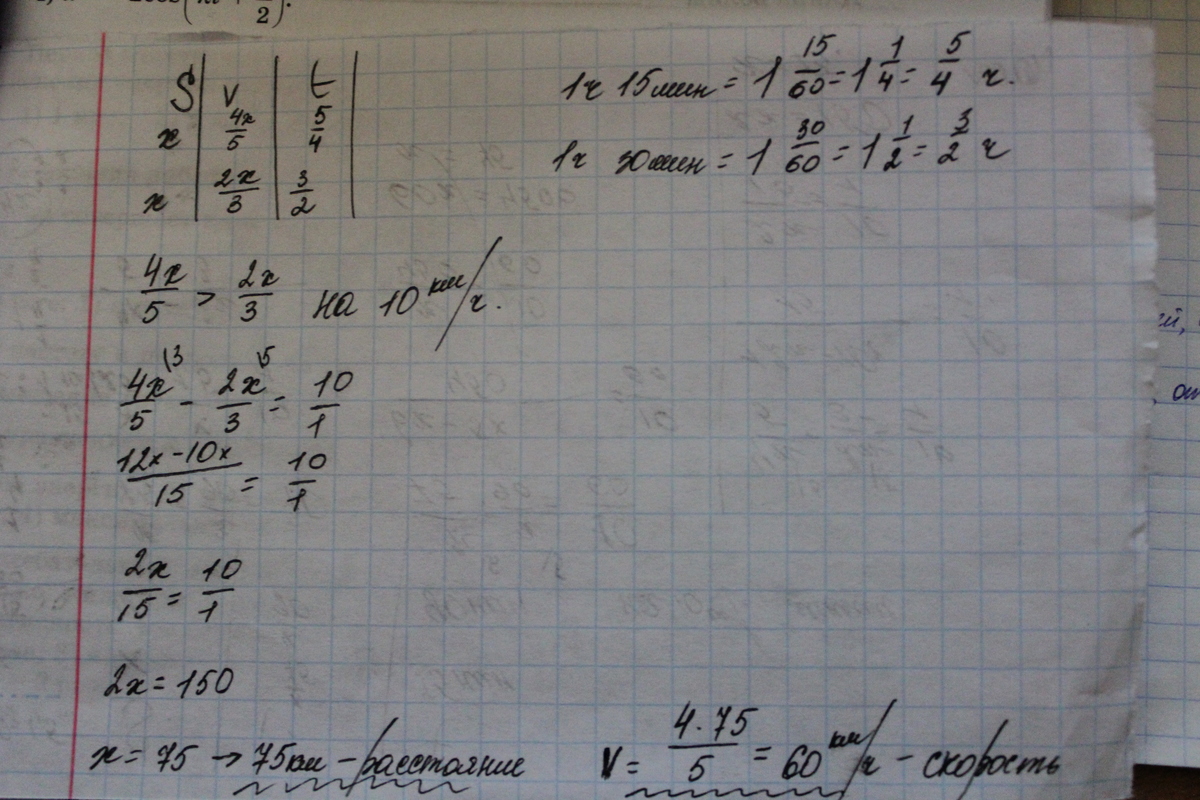 S | V | t
x | 4x/5 | 5/4
x | 2x/3 | 3/2
1ч 15мин = 1 15/60 = 1 1/4 = 5/4 ч.
1ч 30мин = 1 30/60 = 1 1/2 = 3/2 ч
4x/5 > 2x/3 на 10 км/ч.
4x\3/5 - 2x\5/3 = 10/1
12x-10x/15 = 10/1
2x/15 = 10/1
2x = 150
x = 75 → 75км - расстояние
V = 4·75/5 = 60 км/ч - скорость